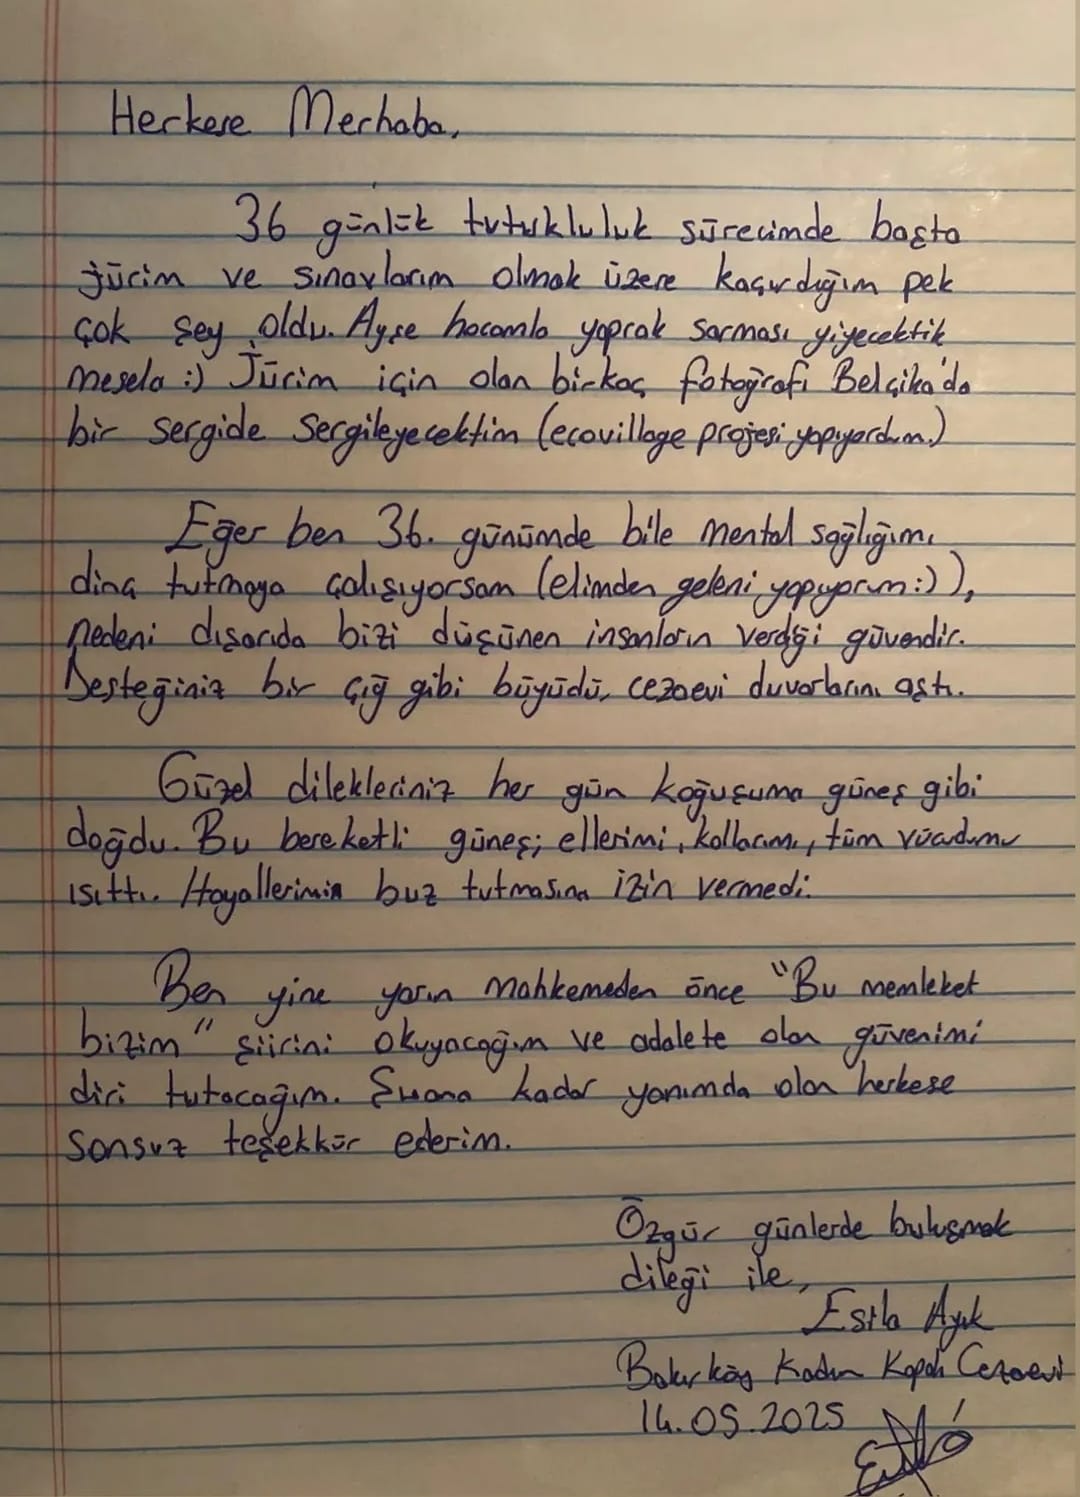 Herkese Merhaba,
36 günlük tutukluluk sürecimde başta
jürim ve sınavlarım olmak üzere kaçırdığım pek
çok şey oldu. Ayşe hocamla yaprak sarması yiyecektik
mesela :) Jürim için olan birkaç fotoğrafı Belçika'da
bir sergide sergileyecektim (ecovillage projesi yapıyordum.)
Eğer ben 36. günümde bile mental sağlığımı
dinç tutmaya çalışıyorsam (elimden geleni yapıyorum :) ),
nedeni dışarıda bizi düşünen insanların verdiği güvendir.
Desteğiniz bir çığ gibi büyüdü, cezaevi duvarlarını aştı.
Güzel dilekleriniz her gün koğuşuma güneş gibi
doğdu. Bu bereketli güneş; ellerimi, kollarımı, tüm vücudumu
ısıttı. Hayallerimin buz tutmasına izin vermedi.
Ben yine yarın mahkemeden önce "Bu memleket
bizim" şiirini okuyacağım ve adalete olan güvenimi
diri tutacağım. Şuana kadar yanımda olan herkese
sonsuz teşekkür ederim.
Özgür günlerde buluşmak
dileği ile,
Esila Ayık
Bakırköy Kadın Kapalı Cezaevi
14.05.2025